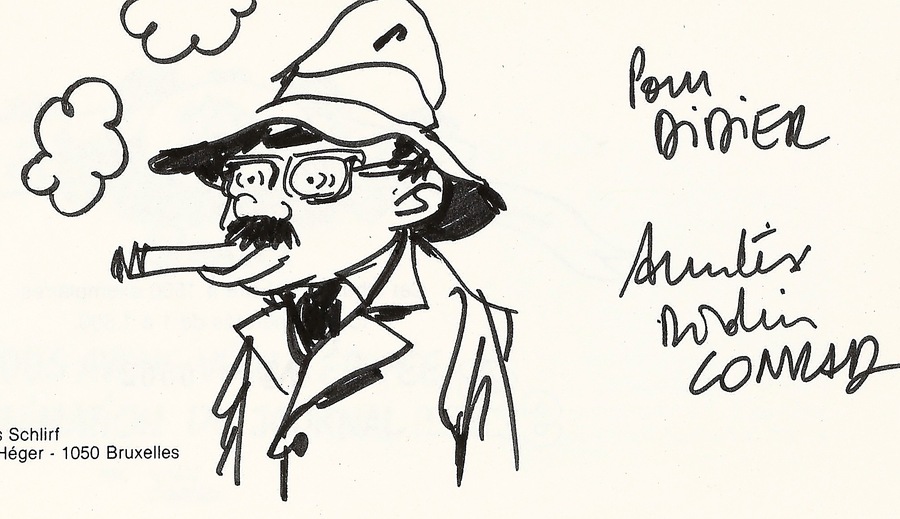 Pour
DIDIER
Amitiés
Didier
CONRAD
s Schlirf
Héger - 1050 Bruxelles